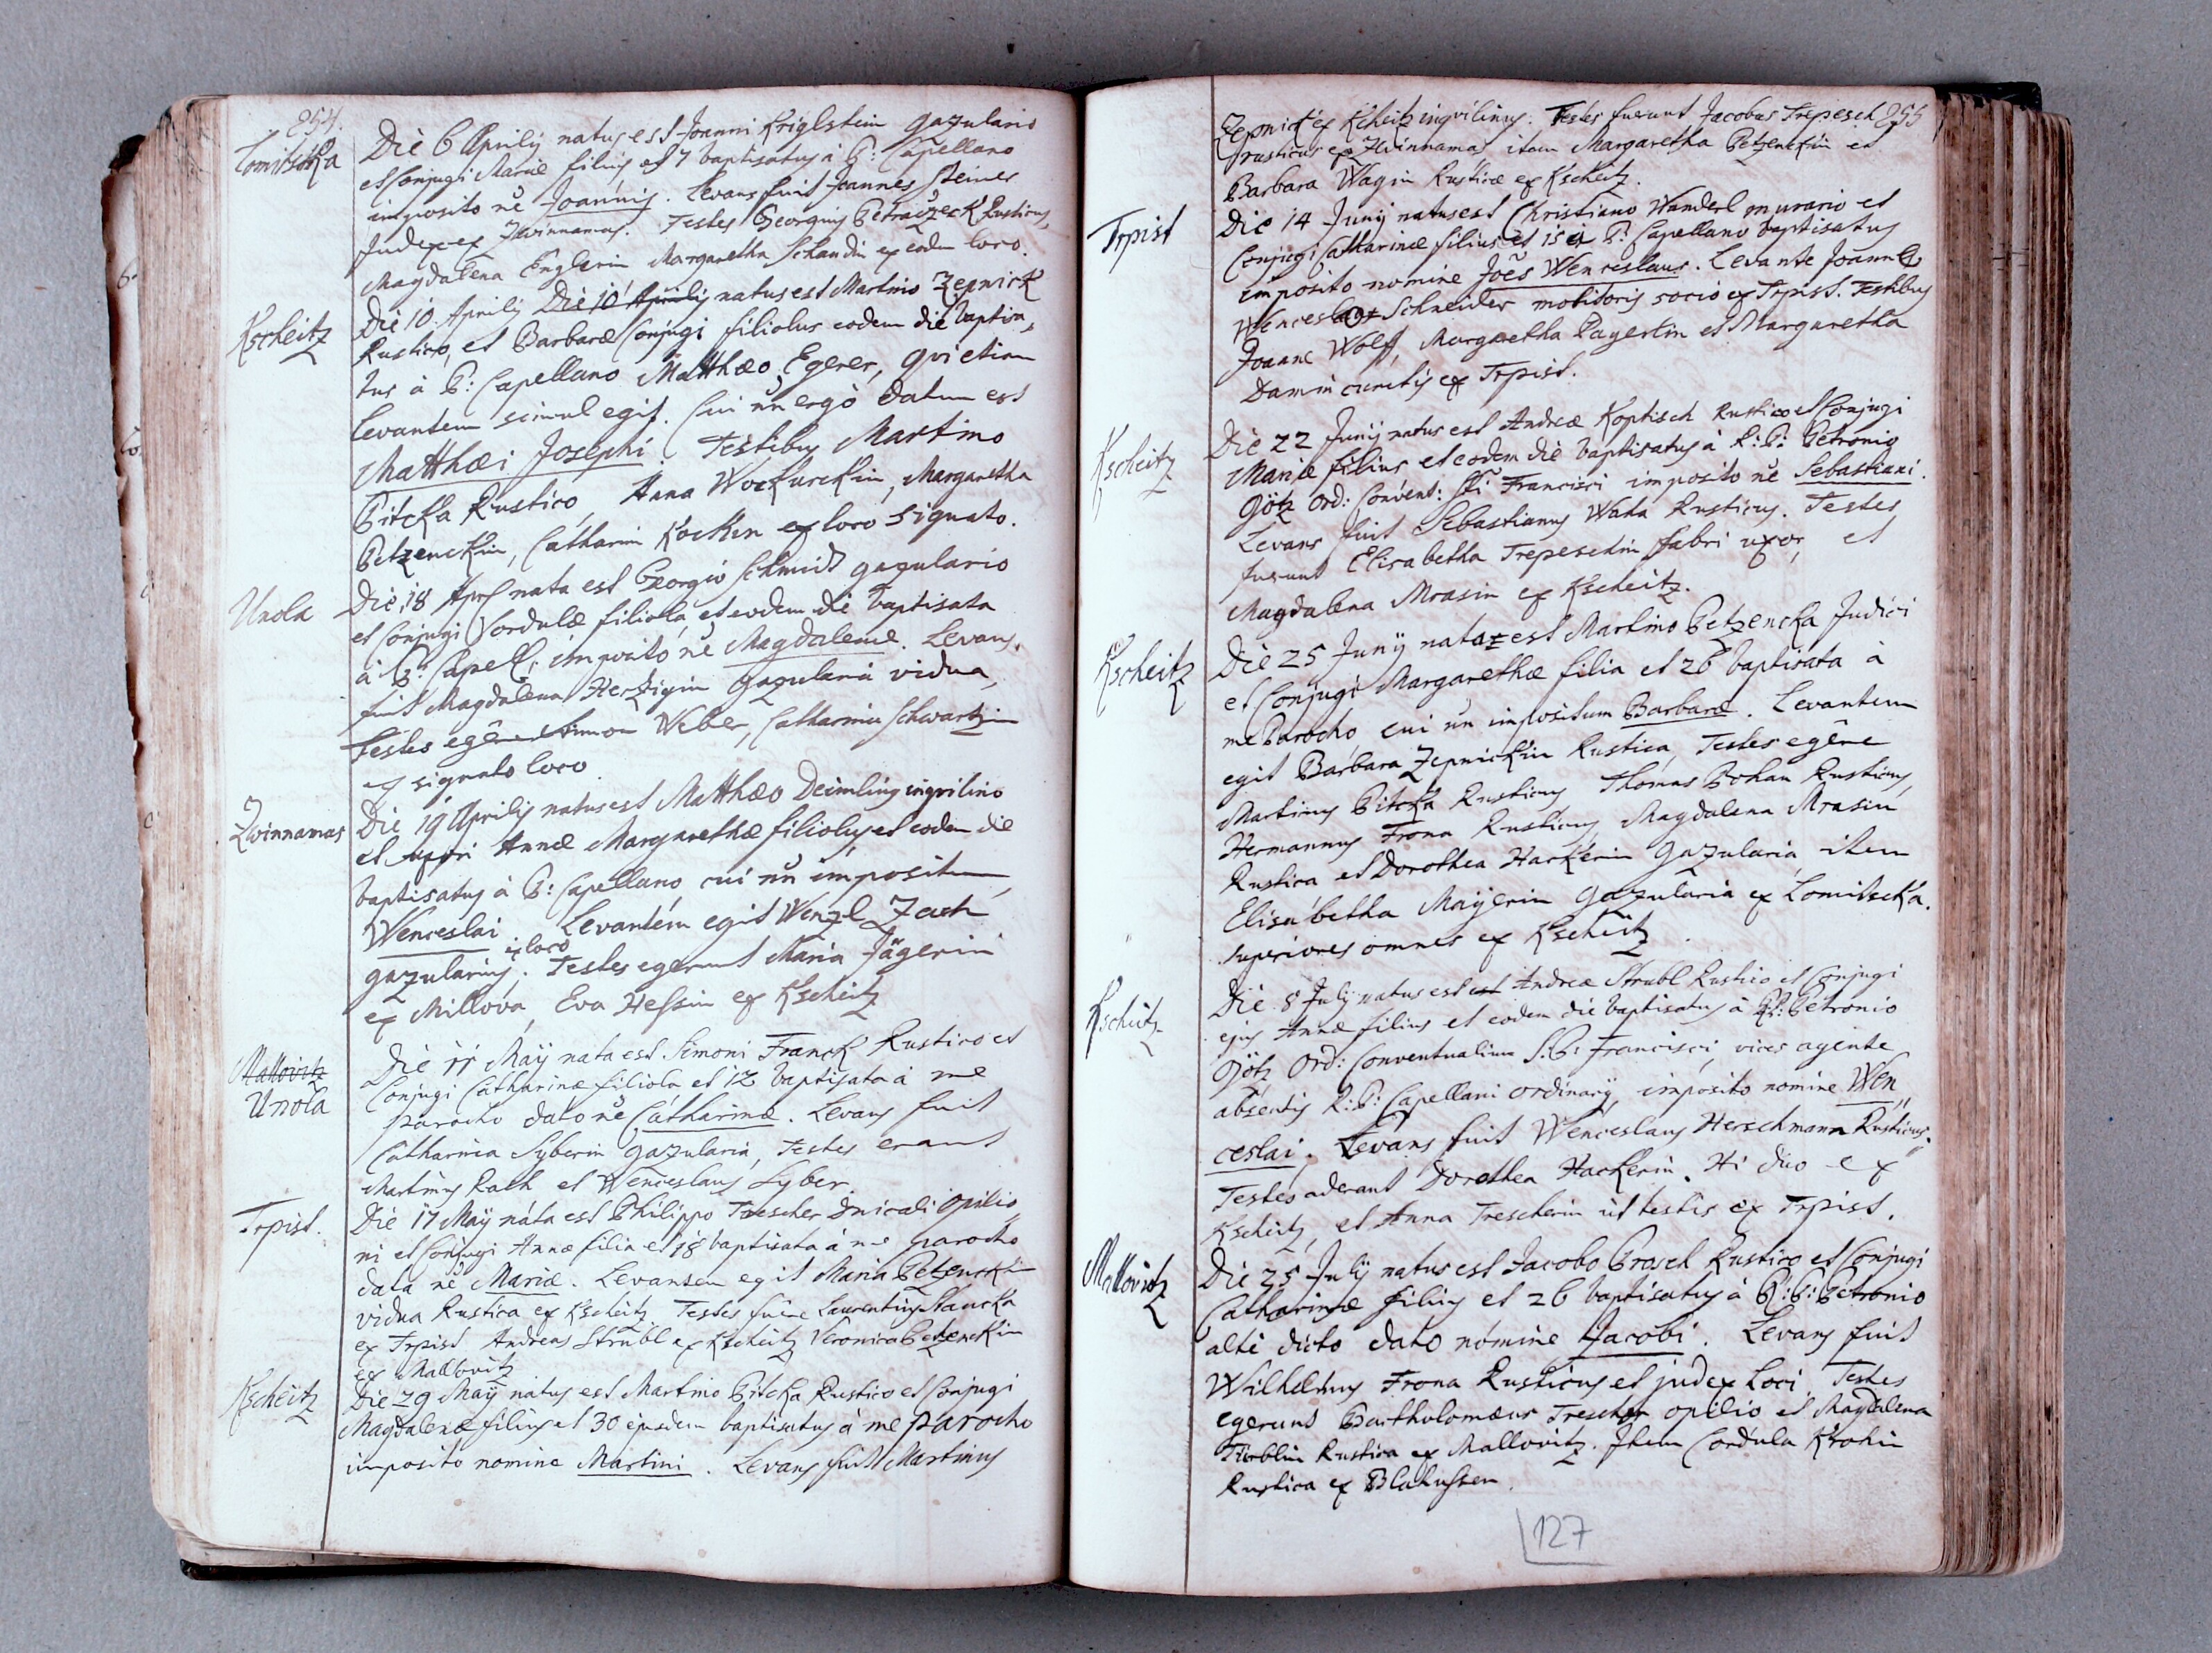 254.
Lomitscka
Die 6 Aprilis natus est Joanni Kriglstein gazulario
et Conjugi Mariæ filius et 7 baptisatus à P: Capellano
imposito nē Joannis. Levans fuit Joannes Steiner
Judex ex Zwinnamas. Testes Georgius Petraczeck Rusticus,
Magdalena Englerin Margaretha Schandin ex eodem loco.
Kscheitz
Die 10 Aprilis Die 10 Aprilis natus est Martino Zepnick
Rustico, et Barbaræ Conjugi filiolus eodem die baptisa„
tus à P: Capellano Matthæo Egerer, qvi etiam
levantem scimul egit. Cui nn ergò datum est
Matthæi Josephi. Testibus Martino
Pitcka Rustico, Anna Wockurckin, Margaretha
Petzenckin, Catharin Kockin ex loco signato.
Unola
Die 18 Apr nata est Georgio Schmid gazulario
et Conjugi Cordulæ filiola et eodem die baptisata
à P: Capell, imposito nē Magdalenæ. Levans
fuit Magdalena Herzigin gazularia vidua,
Testes egêre Simon Weber, Catharina Schwartzin
ex signato loco.
Zwinnamas
Die 19 Aprilis natus est Matthæo Deimling inqvilino
et uxori Annæ Margarethæ filiolus et eodem die
baptisatus à P: Capellano cui nn impositum
Wenceslai. Levantem egit Wenzl Zach
gazularius ex loco. Testes egerunt Maria Jägerin
ex Millova, Eva Hessin ex Kscheitz
Mallovitz
Unola
Die 11 Maÿ nata est Simoni Franck Rustico et
Conjugi Catharinæ filiola et 12 baptisata à me
parocho dato nē Catharinæ. Levans fuit
Catharina Syberin gazularia, Testes erant
Martinus Rath et Wenceslaus Syber.
Trpist.
Die 17 Maÿ nata est Philippo Trescher Dnicali opilio„
ni et Conjugi Annæ filia et 18 baptisata à me parocho
data nē Mariæ. Levantem egit Maria Petzenckin
vidua Rustica ex Kscheitz Testes fuêre Laurentius Stancka
ex Trpist Andreas Strubl ex Kscheitz Veronica Petzenckin
ex Mallovitz
Kscheitz
Die 29 Maÿ natus est Martino Pitcka Rustico et Conjugi
Magdalenæ filius et 30 ejusdem baptisatus à me parocho
imposito nomine Martini. Levans fuit Martinus
255
Zepnick ex Kscheitz inqvilinus. Testes fuerunt Jacobus Trepesch
rusticus ex Zwinnamas, item Margaretha Petzenckin et
Barbara Wagin Rusticæ ex Kscheitz.
Trpist
Die 14 Junÿ natus est Christiano Wanderl murario et
Conjugi Catharinæ filius et 15 à P: Capellano baptisatus
imposito nomine Joēs Wenceslaus. Levante Joanne
Wenceslao Schneider molitoris socio ex Trpist. Testibus
Joane Wolff, Margaretha Pagertin et Margaretha
Damin cunctis ex Trpist.
Kscheitz
Die 22 Junÿ natus est Andreæ Koptisch Rustico et Conjugi
Mariæ filius et eodem die baptisatus à R: P: Petronio
Götz Ord: Convent: Sti Francisci imposito nē Sebastiani.
Levans fuit Sebastianus Wata Rusticus. Testes
fuerunt Elisabetha Trepeschin fabri uxor, et
Magdalena Mrasin ex Kscheitz.
Kscheitz
Die 25 Junÿ nata est Martino Petzencka Judici
et Conjugi Margarethæ filia et 26 baptisata à
me Parocho cui nn impositum Barbaræ. Levantem
egit Barbara Zepnickin Rustica, Testes egêre
Martinus Pitcka Rusticus Thomas Bohan Rusticus,
Hermannus Frona Rusticus, Magdalena Mrasin
Rustica et Dorothea Hackerin Gazularia, item
Elisabetha Maÿerin gazularia ex Lomitscka.
superiores omnes ex Kscheitz.
Kscheitz
Die 8 Julÿ natus est est Andreæ Strubl Rustico et Conjugi
ejus Annæ filius et eodem die baptisatus à R: P: Petronio
Götz Ord: Conventualium S: P: Francisci, vices agente
absentis R: P: Capellani ordinarÿ, imposito nomine Wen„
ceslai. Levans fuit Wenceslaus Herschmann Rusticus.
Testes aderant Dorothea Hackerin. Hi duo ex
Kscheitz, et Anna Trescherin ut testis ex Trpist.
Mallovitz
Die 25 Julÿ natus est Jacobo Prosch Rustico et Conjugi
Catharinæ filius et 26 baptisatus à R: P: Petronio
alte dicto dato nomine Jacobi. Levans fuit
Wilhelmus Frona Rusticus et judex Loci. Testes
egerunt Bartholomæus Trescher opilio et Magdalena
Tirblin Rustica ex Mallovitz. Item Cordula Krohin
Rustica ex Blahussen.
127